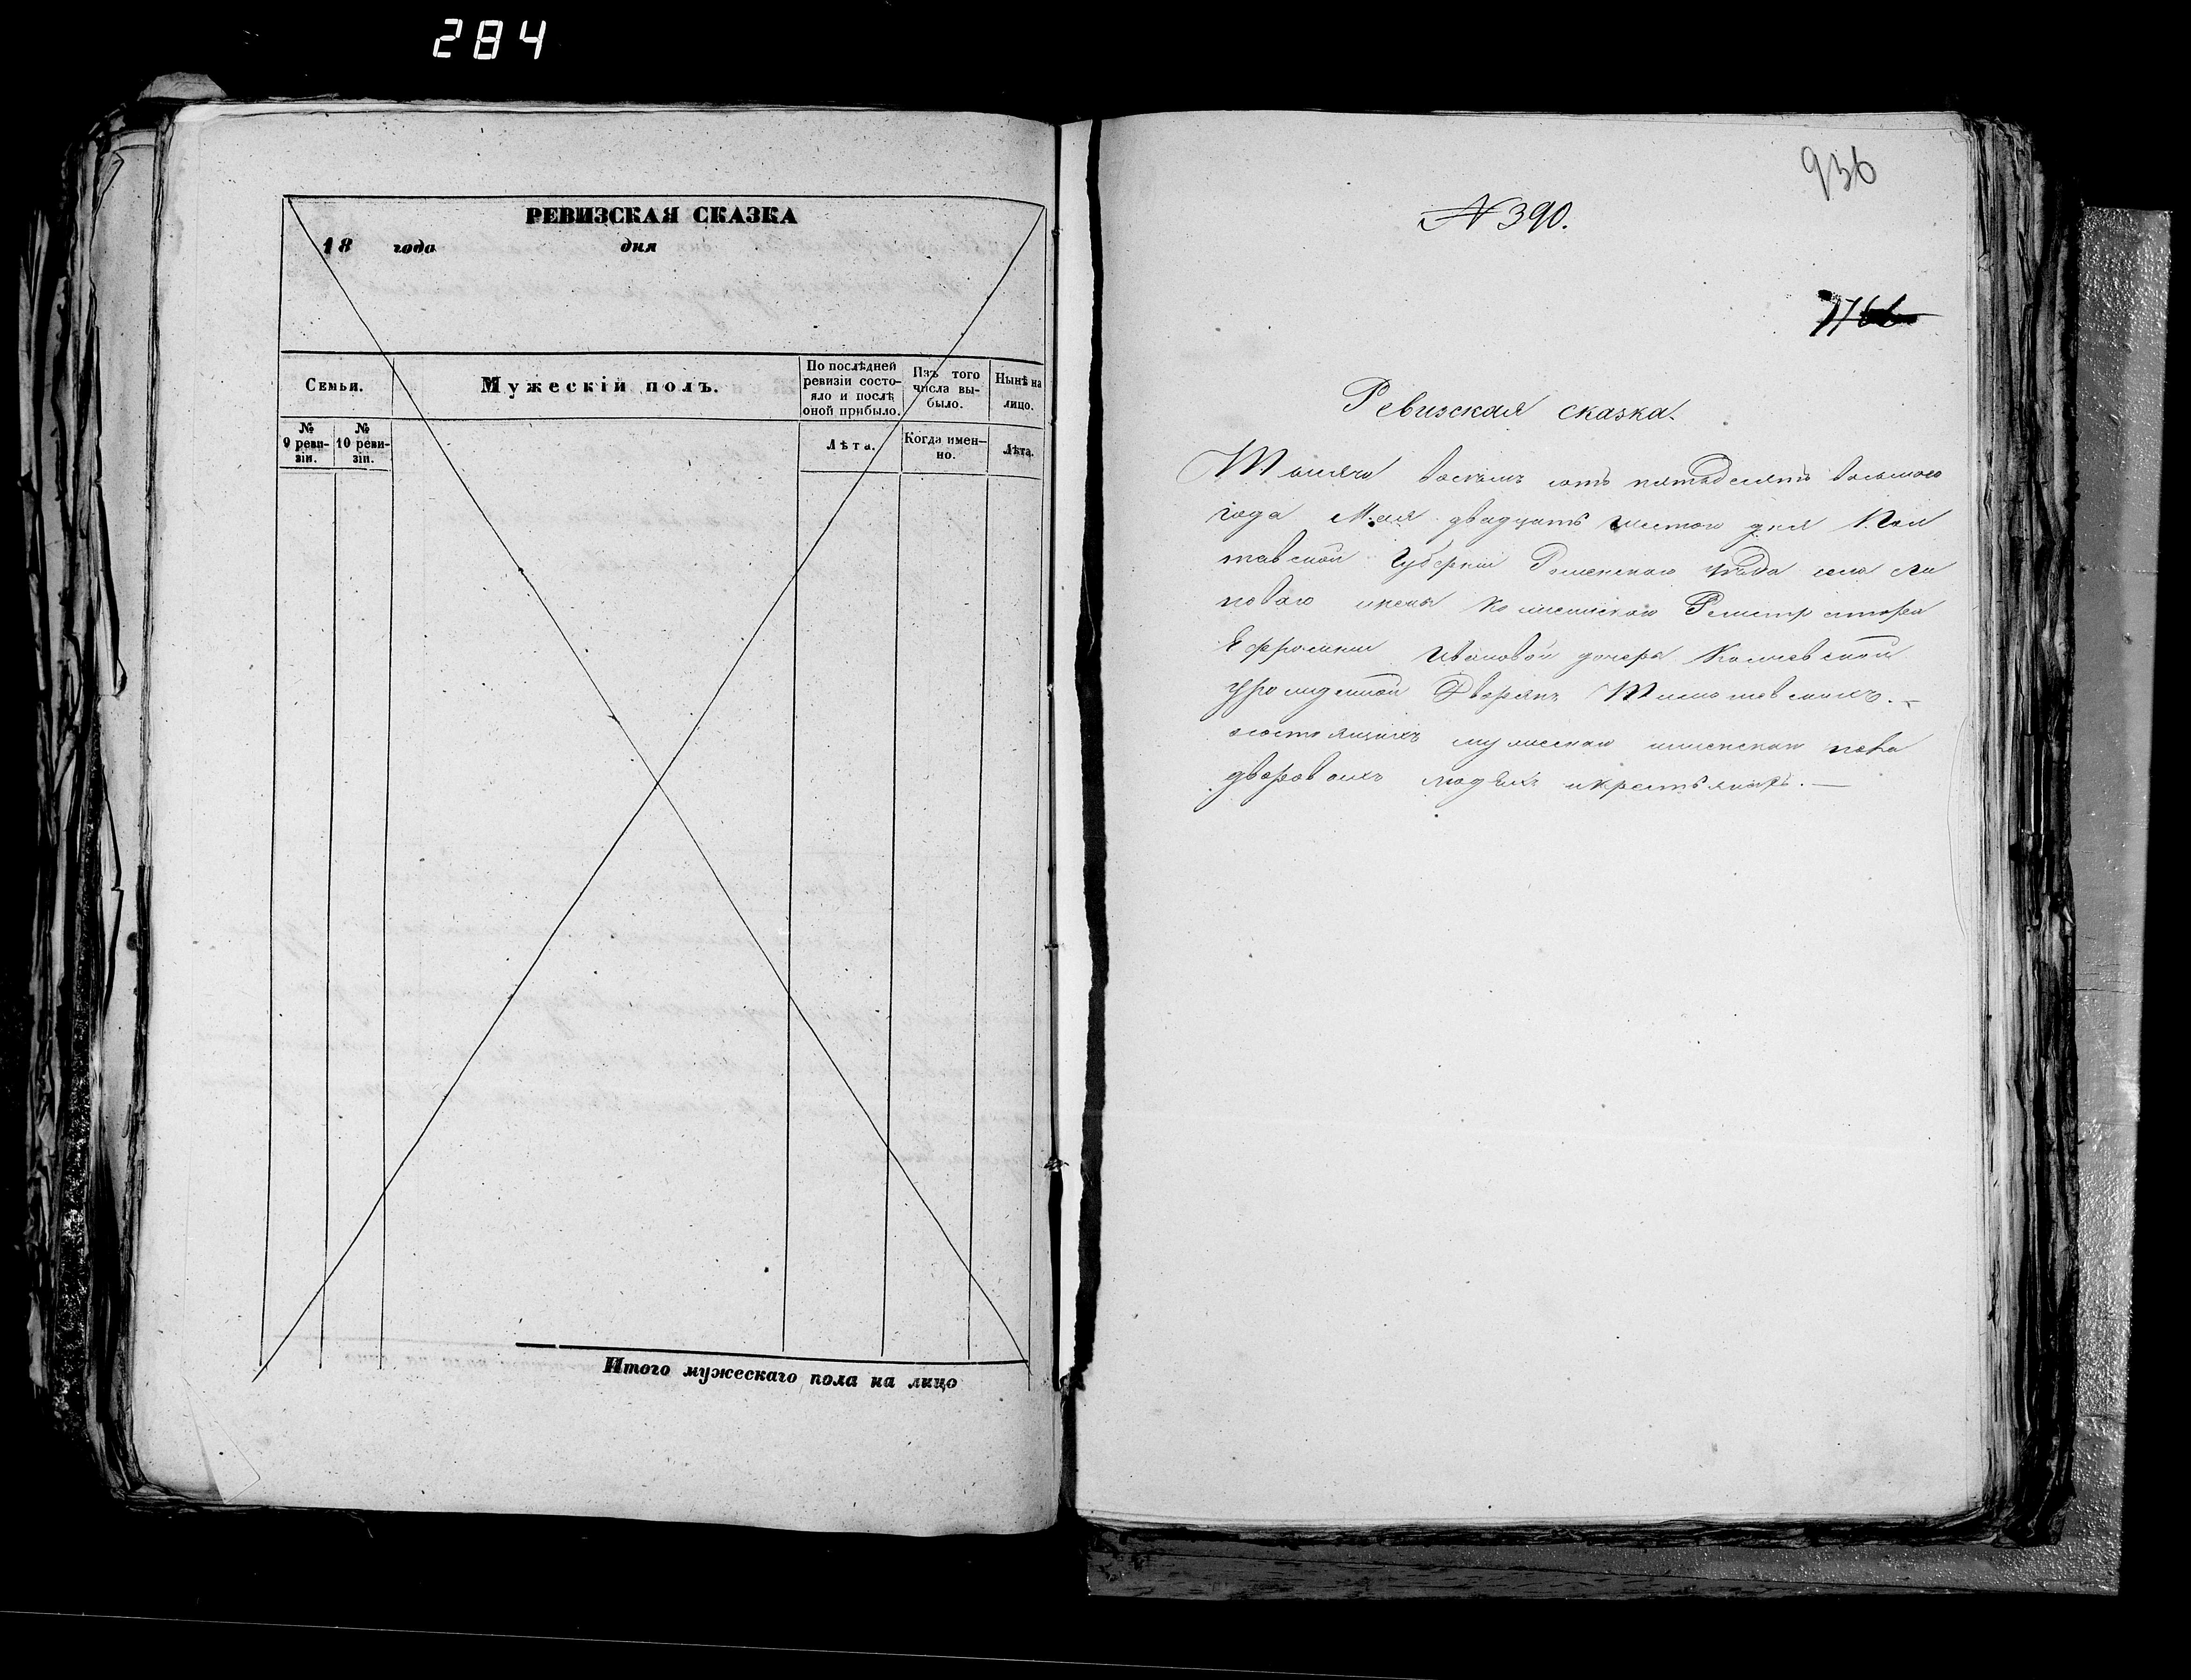 284
РЕВИЗСКАЯ СКАЗКА
18 года дня
Семьи.
Мужескiй полъ.
По послѣдней ревизiи состо-
яло и послѣ оной прибыло.
Изъ того числа вы-
было.
Нынѣ на лицо.
№ 9 реви-
зiи.
№ 10 реви-
зiи.
Лѣта.
Когда имен-
но.
Лѣта.
Итого мужескаго пола на лицо
936
N 390.
Ревизская сказка.
Тысяча восемь сотъ пятьдесятъ восьмого
года Мая двадцать шестого дня Пол
тавской Губернiи Роменскаго уѣзда села Ли
поваго жены Колежскаго Регистратора
Ефросинiи Ивановой дочери
урожденной Дворянъ
состоящихъ мужеска женска пола
дворовыхъ людяхъ и крестьянахъ. —